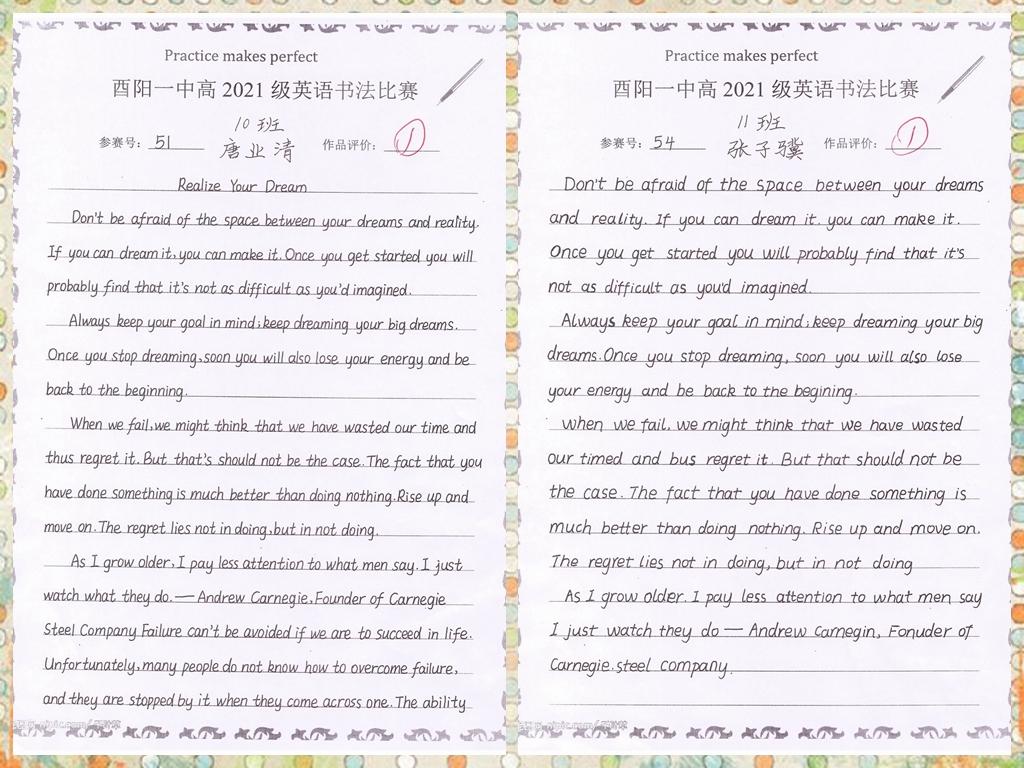 Practice makes perfect
酉阳一中高 2021 级英语书法比赛
10 班
参赛号: 51 唐业清 作品评价: 1
Realize Your Dream
Don't be afraid of the space between your dreams and reality.
If you can dream it, you can make it. Once you get started you will
probably find that it's not as difficult as you'd imagined.
Always keep your goal in mind; keep dreaming your big dreams.
Once you stop dreaming, soon you will also lose your energy and be
back to the beginning.
When we fail, we might think that we have wasted our time and
thus regret it. But that's should not be the case. The fact that you
have done something is much better than doing nothing. Rise up and
move on. The regret lies not in doing, but in not doing.
As I grow older, I pay less attention to what men say. I just
watch what they do. — Andrew Carnegie, Founder of Carnegie
Steel Company Failure can't be avoided if we are to succeed in life.
Unfortunately, many people do not know how to overcome failure,
and they are stopped by it when they come across one. The ability
Practice makes perfect
酉阳一中高 2021 级英语书法比赛
11 班
参赛号: 54 张子骥 作品评价: 1
Don't be afraid of the space between your dreams
and reality. If you can dream it. you can make it.
Once you get started you will probably find that it's
not as difficult as you'd imagined.
Always keep your goal in mind; keep dreaming your big
dreams. Once you stop dreaming, soon you will also lose
your energy and be back to the begining.
when we fail, we might think that we have wasted
our timed and bus regret it. But that should not be
the case. The fact that you have done something is
much better than doing nothing. Rise up and move on.
The regret lies not in doing, but in not doing
As I grow older. I pay less attention to what men say
I just watch they do — Andrew Carnegin, Fonuder of
Carnegie. steel company.